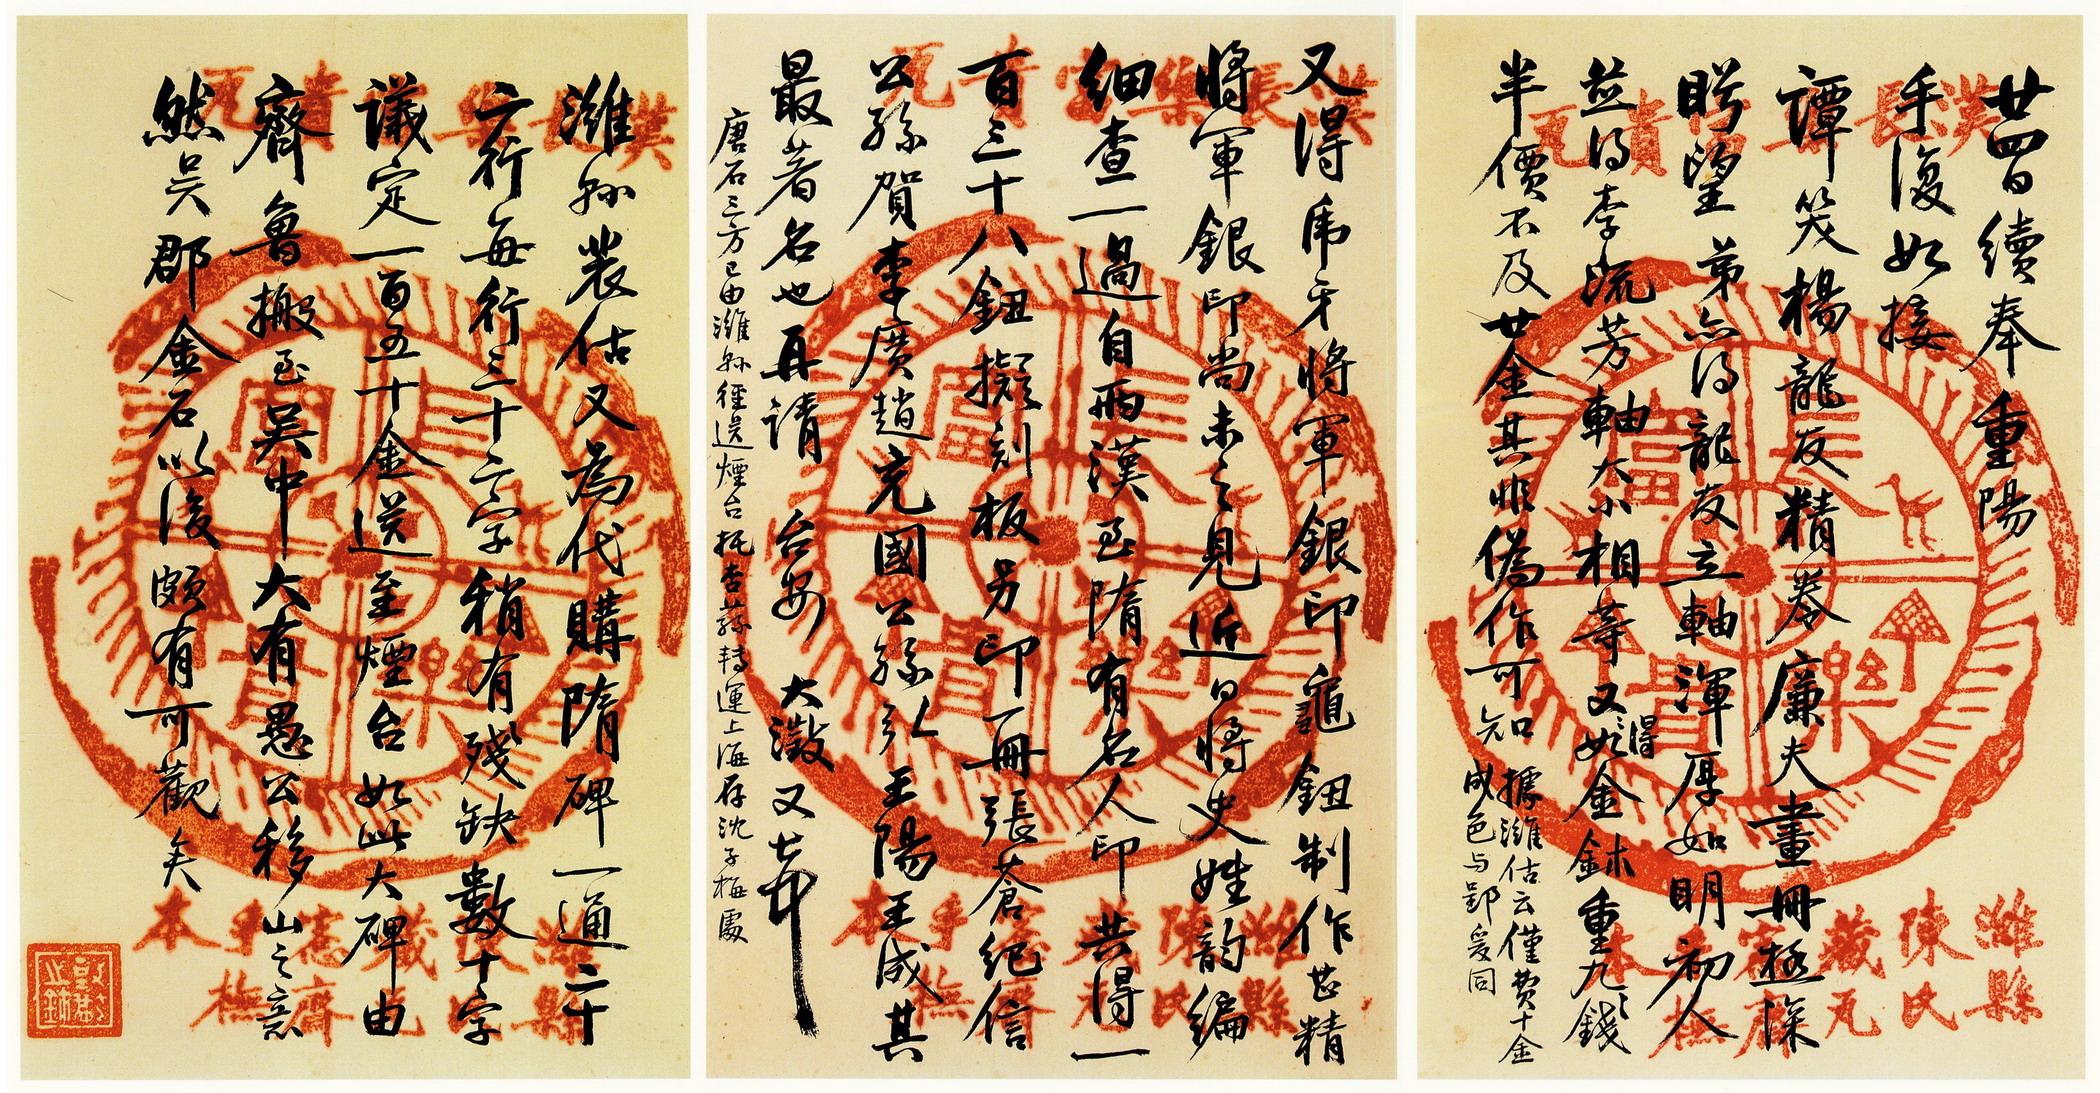 廿四日續奉重陽
手復如接
譚笑楊龍友精卷廉夫畫冊極深
盻望弟亦得龍友立軸渾厚如明初人
並得李流芳軸大小相等又得如金鉥重九錢
半價不及廿金其非偽作可知
據濰估云僅費十金
成色与郢爰同
又得虎牙將軍銀印龜鈕制作甚精
將軍銀印尚未之見近日將史姓韵編
細查一過自兩漢至隋有名人印共得一
百三十八鈕擬刻板另印一冊張蒼紀信
公孫賀李廣趙充國公孫弘王陽王成其
最著名也再請台安大澂又頓
唐石三方已由濰縣徑送煙台托杏蓀轉運上海存沈子梅處
濰縣裴估又為代購隋碑一通二十
六行每行三十六字稍有殘缺數十字
議定一百五十金送至煙台如此大碑由
齊魯搬至吳中大有愚公移山之意
然吳郡金石以後頗有可觀矣
漢長樂富貴瓦
長樂富貴
濰縣陳氏藏瓦
窓齋手橅本